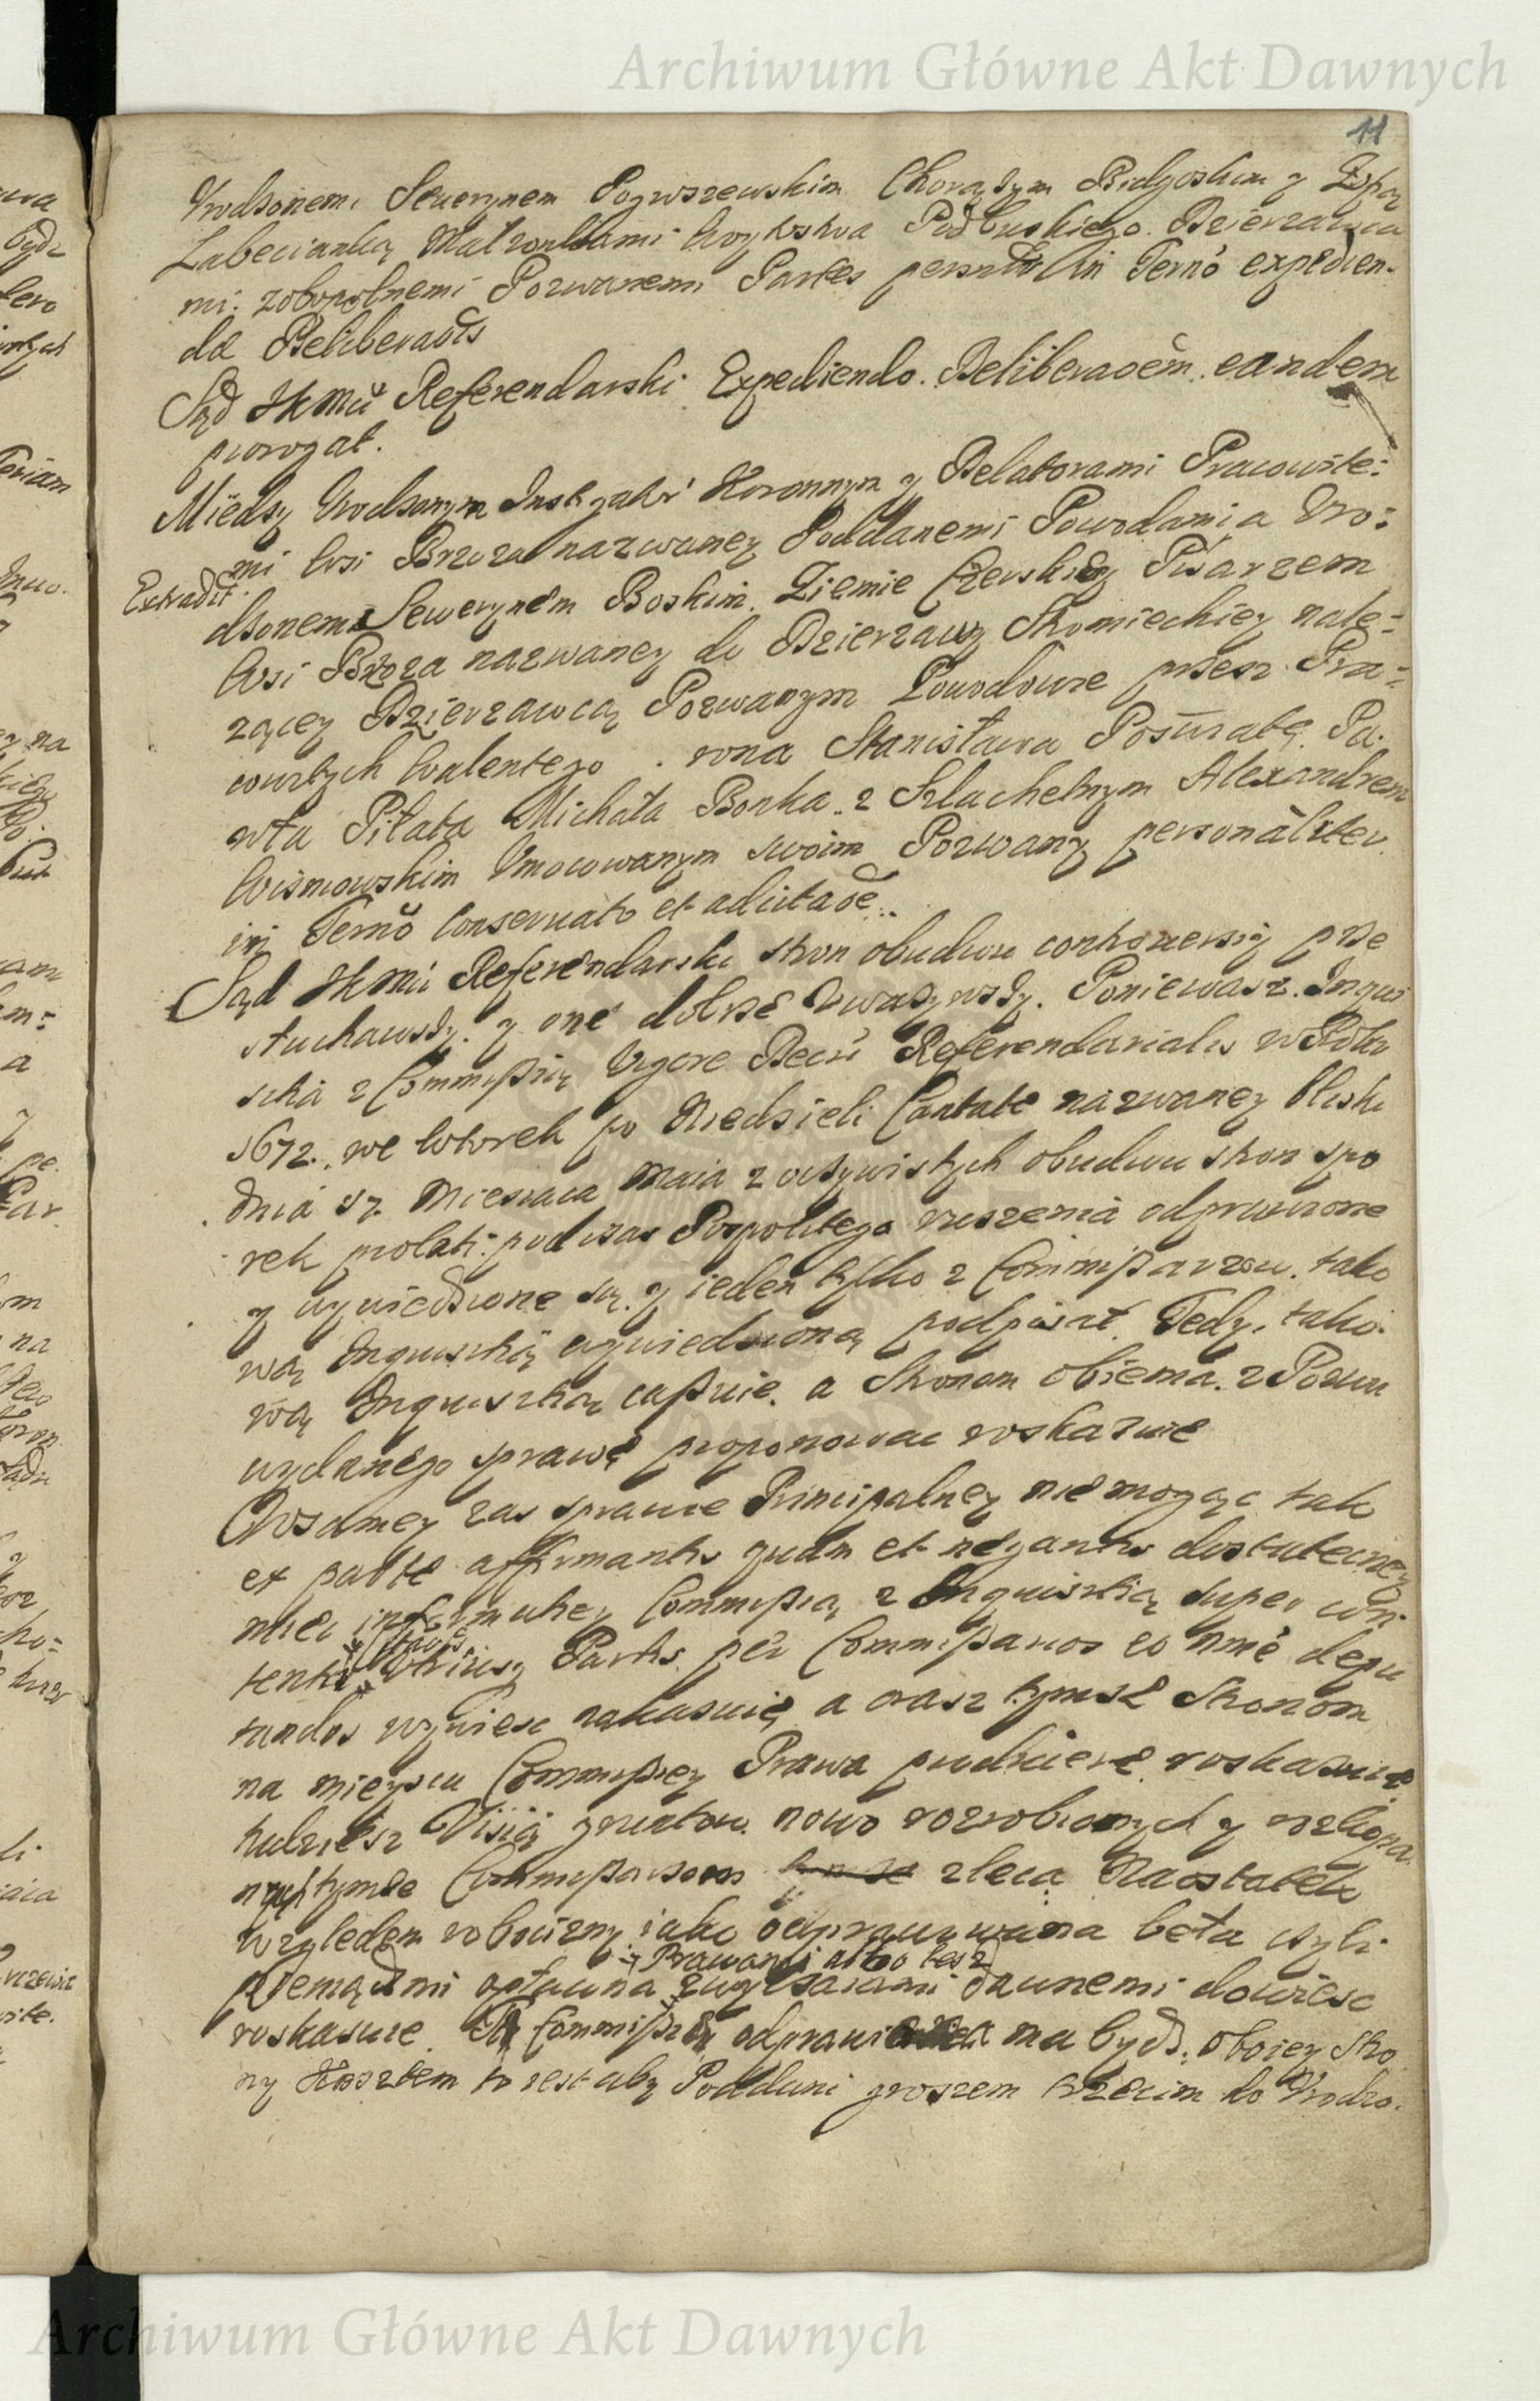 Archiwum Główne Akt Dawnych
11
Vrodzonemi Sewerynem Chorążym Bidgoskim y Zophią
Małzonkami Woytostwa Dzierzawca
mi zobopolnemi Pozwanemi Partes in Termo expedien-
dae Deliberaois
Sąd JKMci Referendarski Expediendo Deliberaoem eandem
prorogat.
Między Vrodzonym Instigatori Koronnym y Delatorami Pracowite:
mi Wsi Brzoza nazwaney Poddanemi Powodami a Vro:
Extradit.
dzonem Sewerynem Boskim Ziemie Czerskiey Pisarzem
Wsi Brzoza nazwaney do Dzierzawy Stromieckiey nale:
zącey Dzierzawcą Pozwanym Powodowie przez Pra:
cowitych Walentego . rona Stanisława Pa.
wła Piłata Michała Bonka z Szlachetnym Alexandrem
Wismowskim Vmocowanym swoim Pozwany personaliter
in Termo Conservato et
Sąd JKMci Referendarski stron obudwu controuersiy prze
słuchawszy y one dobrze vważywszy. Poniewasz Inqui
sitia z Commissią Vigore Decri Referendarialis w Roku
1672. we Wtorek po Niedzieli Cantate nazwaney bliski
dnia 17 Miesiaca Maia z oczywistych obudwu stron spo
rek prolati podczas Pospolitego ruszenia odprawione
y wywiedzione są. y ieden tylko z Commissarzow. tako
wą Inquisitią wywiedzioną podpisał. Tedy, tako
wą Inquisitią cassuie. a Stronom obiema z Pozwu
wydanego sprawę proponowac roskazuie
Wsamey zas sprawie Principalney nie mogąc tak
ex parte affirmantis quam et negantis dostateczney
mieć informatiey Commissią z Inquisitią super con
tentis utriusq Partis per Commissarios eo nme depu
tandos wywiesc nakazuie a oraz tymze Stronom
na mieyscu Commissiey Prawa produkować roskazuie
tudziesz Visią gruntow nowo rozrobionych y rozkopa
nych tymze Commissarzom zleca Naostatek
względem robocizny iako odprawowana beła czyli
y Prawami albo tesz
pieniądzmi opłacana dawnemi dowiesc
roskazuie. Ta Commissia odprawi ma bydz oboiey stro
ny Kosztem to iest aby Poddani groszem trzecim do Vrodzo.
Archiwum Główne Akt Dawnych